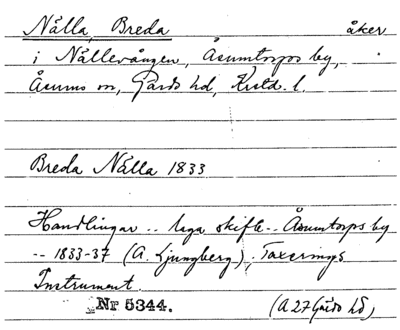 Nålla, Breda åker
i Nållevången, Åsumtorps by,
Åsums sn, Gärds hd, Krstd. l.
Breda Nålla 1833
Handlingar .. laga skifte .. Åsumtorps by
-- 1833-37 (A. Ljungberg), Taxerings
Instrument.
Nr 5344. (A 27 Gärds hd)